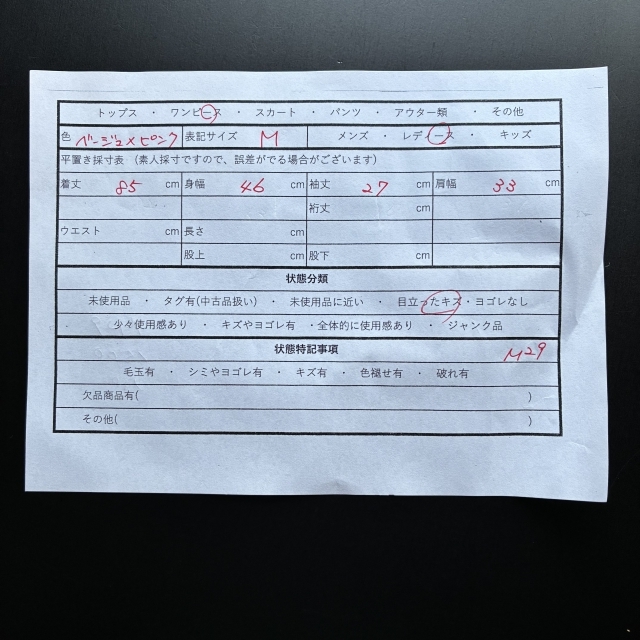 トップス ・ ワンピース ・ スカート ・ パンツ ・ アウター類 ・ その他
色 ベージュ×ピンク 表記サイズ M メンズ ・ レディース ・ キッズ
平置き採寸表 (素人採寸ですので、誤差がでる場合がございます)
着丈 85 cm 身幅 46 cm 袖丈 27 cm 肩幅 33 cm
裄丈 cm
ウエスト cm 長さ cm
股上 cm 股下 cm
状態分類
未使用品 ・ タグ有(中古品扱い) ・ 未使用品に近い ・ 目立ったキズ・ヨゴレなし
少々使用感あり ・ キズやヨゴレ有 ・全体的に使用感あり ・ ジャンク品
状態特記事項 M29
毛玉有 ・ シミやヨゴレ有 ・ キズ有 ・ 色褪せ有 ・ 破れ有
欠品商品有( )
その他( )